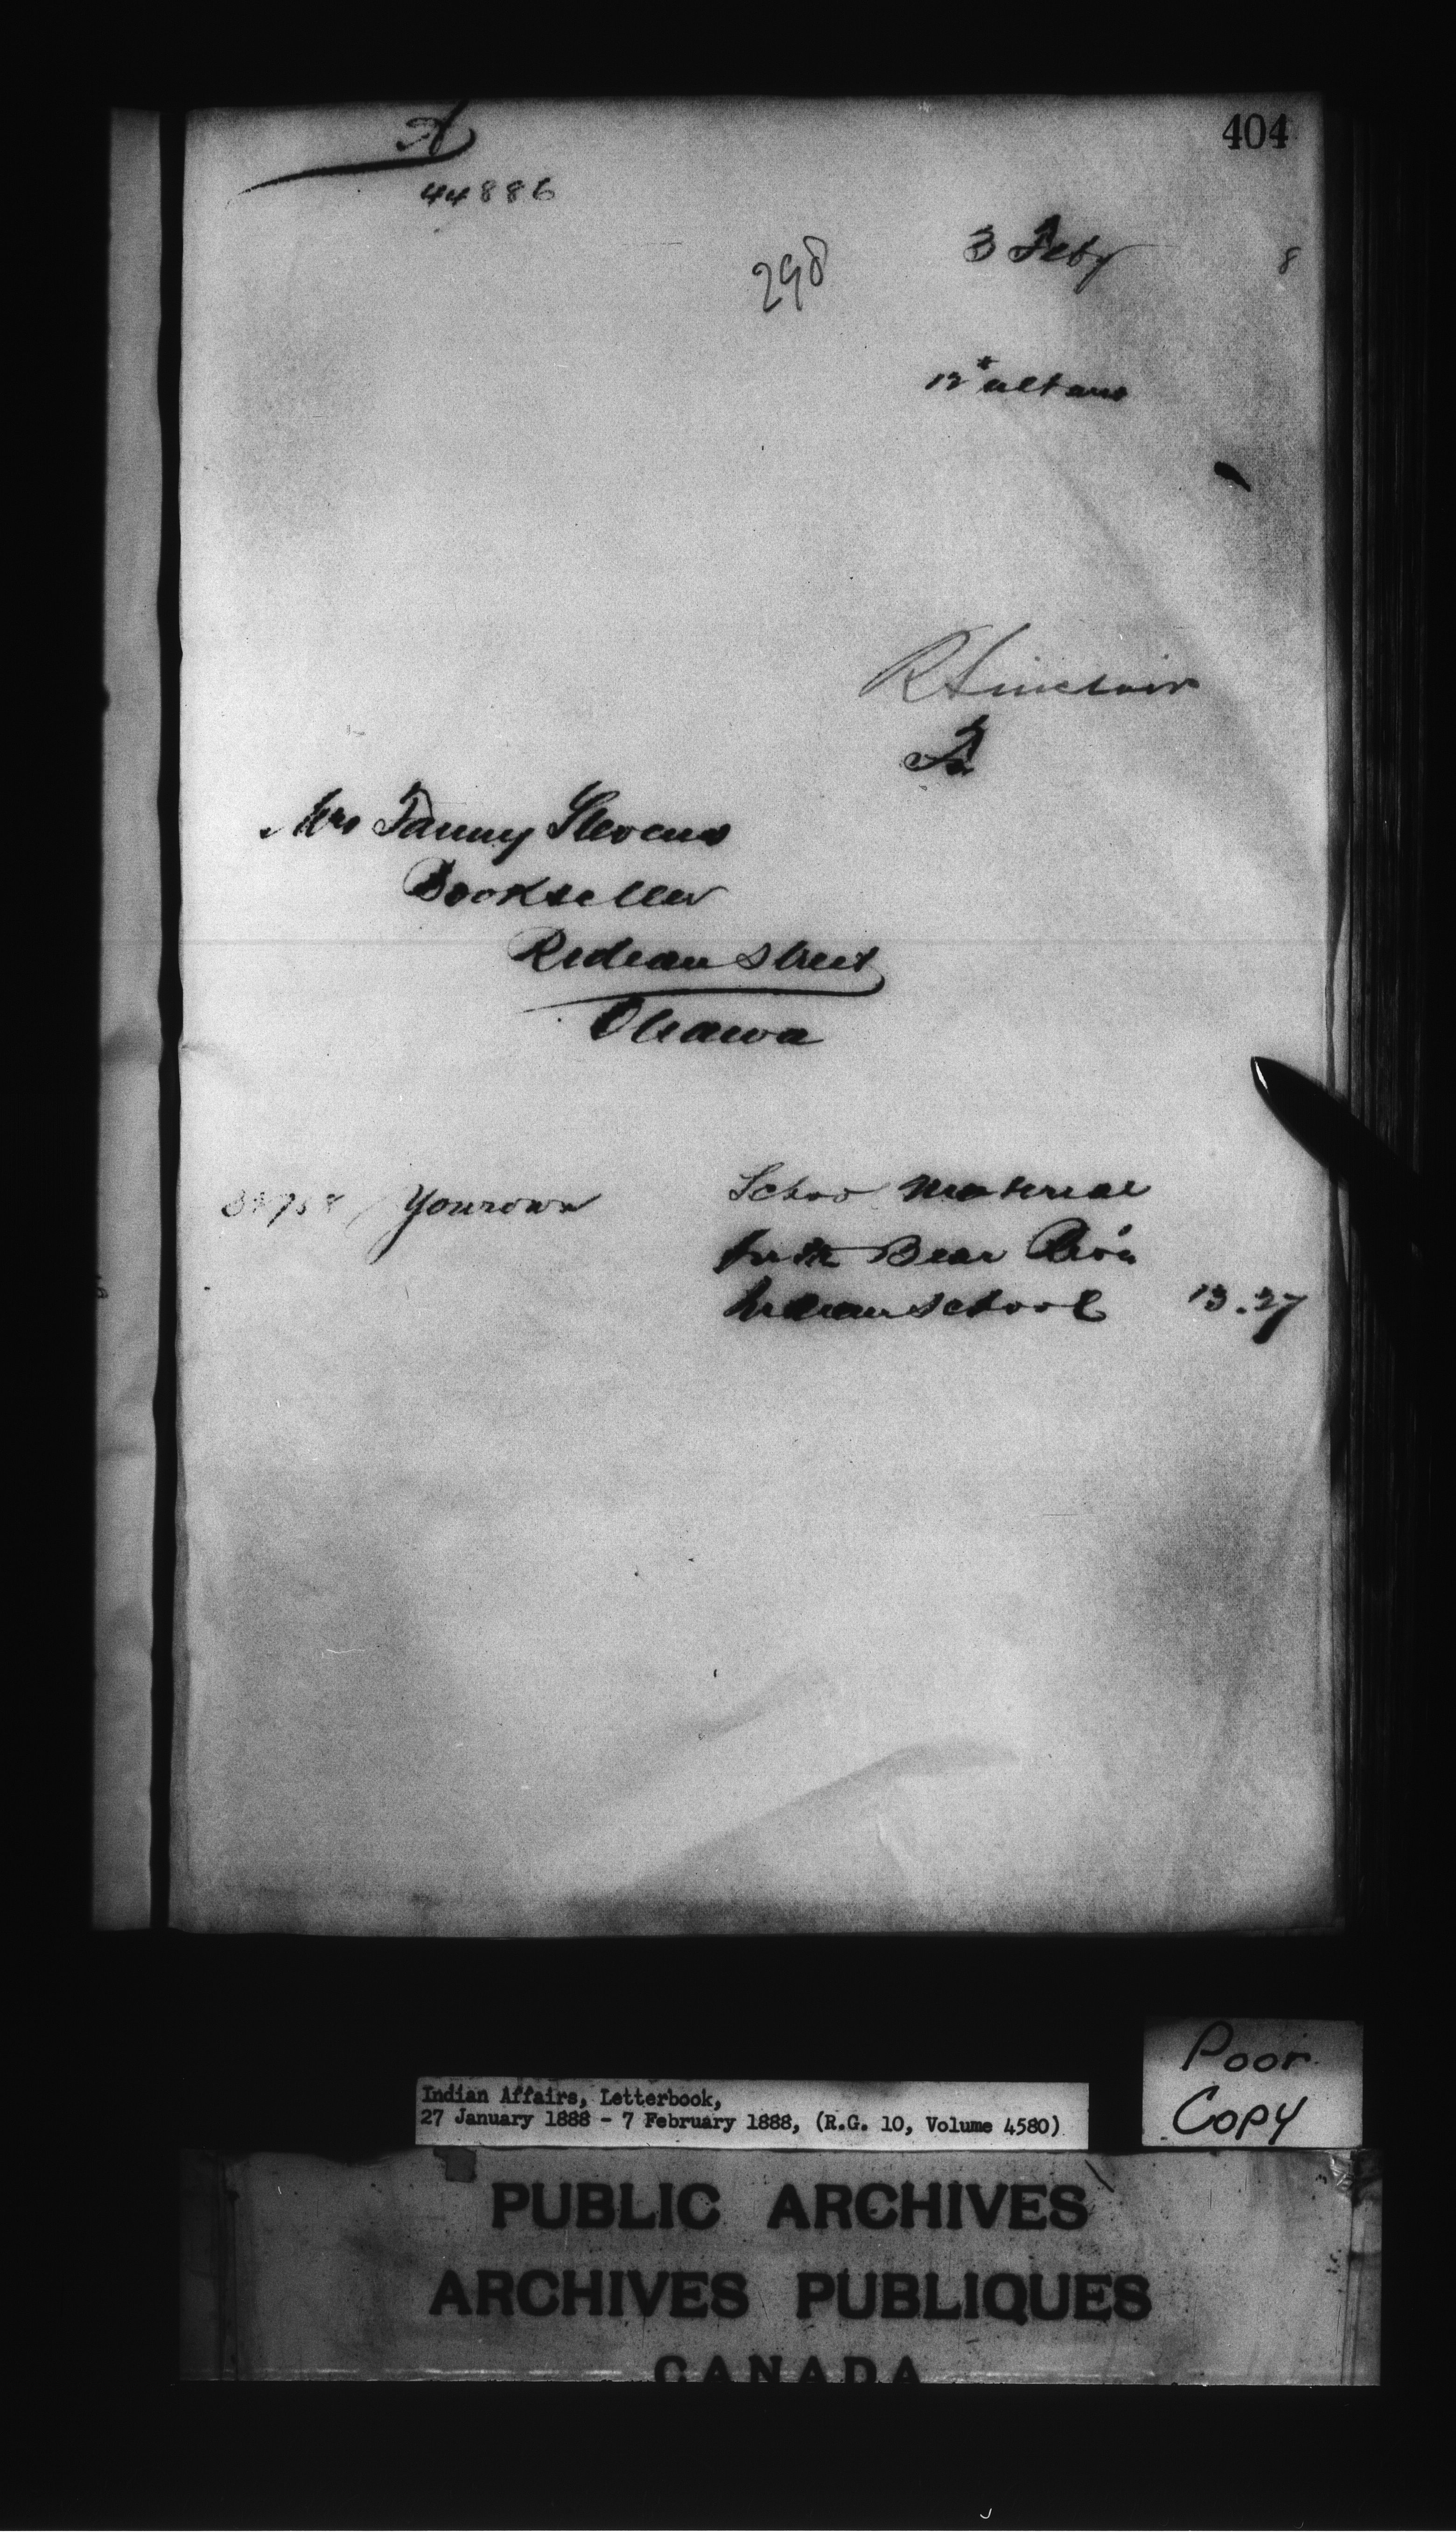 A
404
44886
298
3 Feby
8
12th ulto and
R Sinclair
Mrs Fanny Stevens
Bookseller
Rideau Street
Ottawa
Your own
School Material
for the Bear River
Indian School 13.27
Poor
Copy
Indian Affairs, Letterbook,
27 January 1888 - 7 February 1888, (R.G. 10, Volume 4580)
PUBLIC ARCHIVES
ARCHIVES PUBLIQUES
CANADA